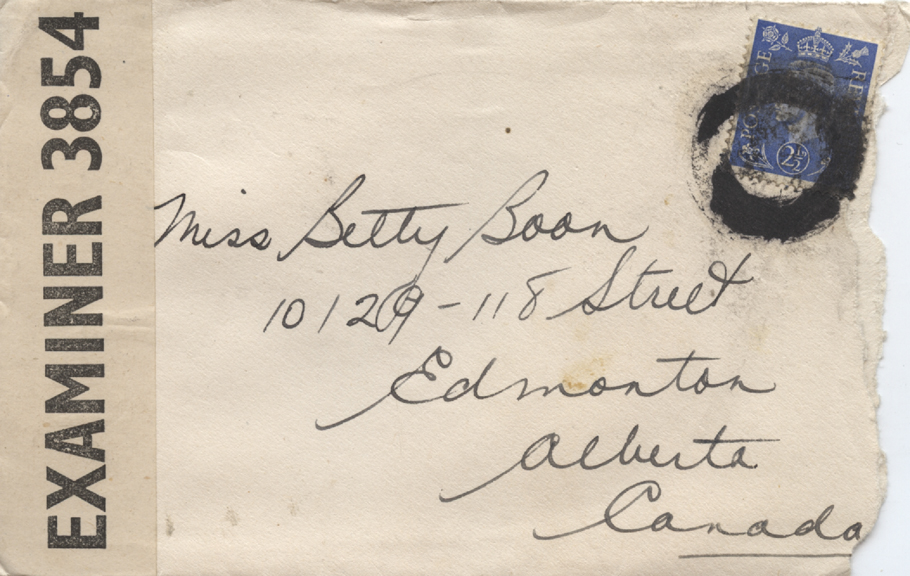 EXAMINER 3854
2½
Miss Betty Boon
10129-118 Street
Edmonton
Alberta
Canada